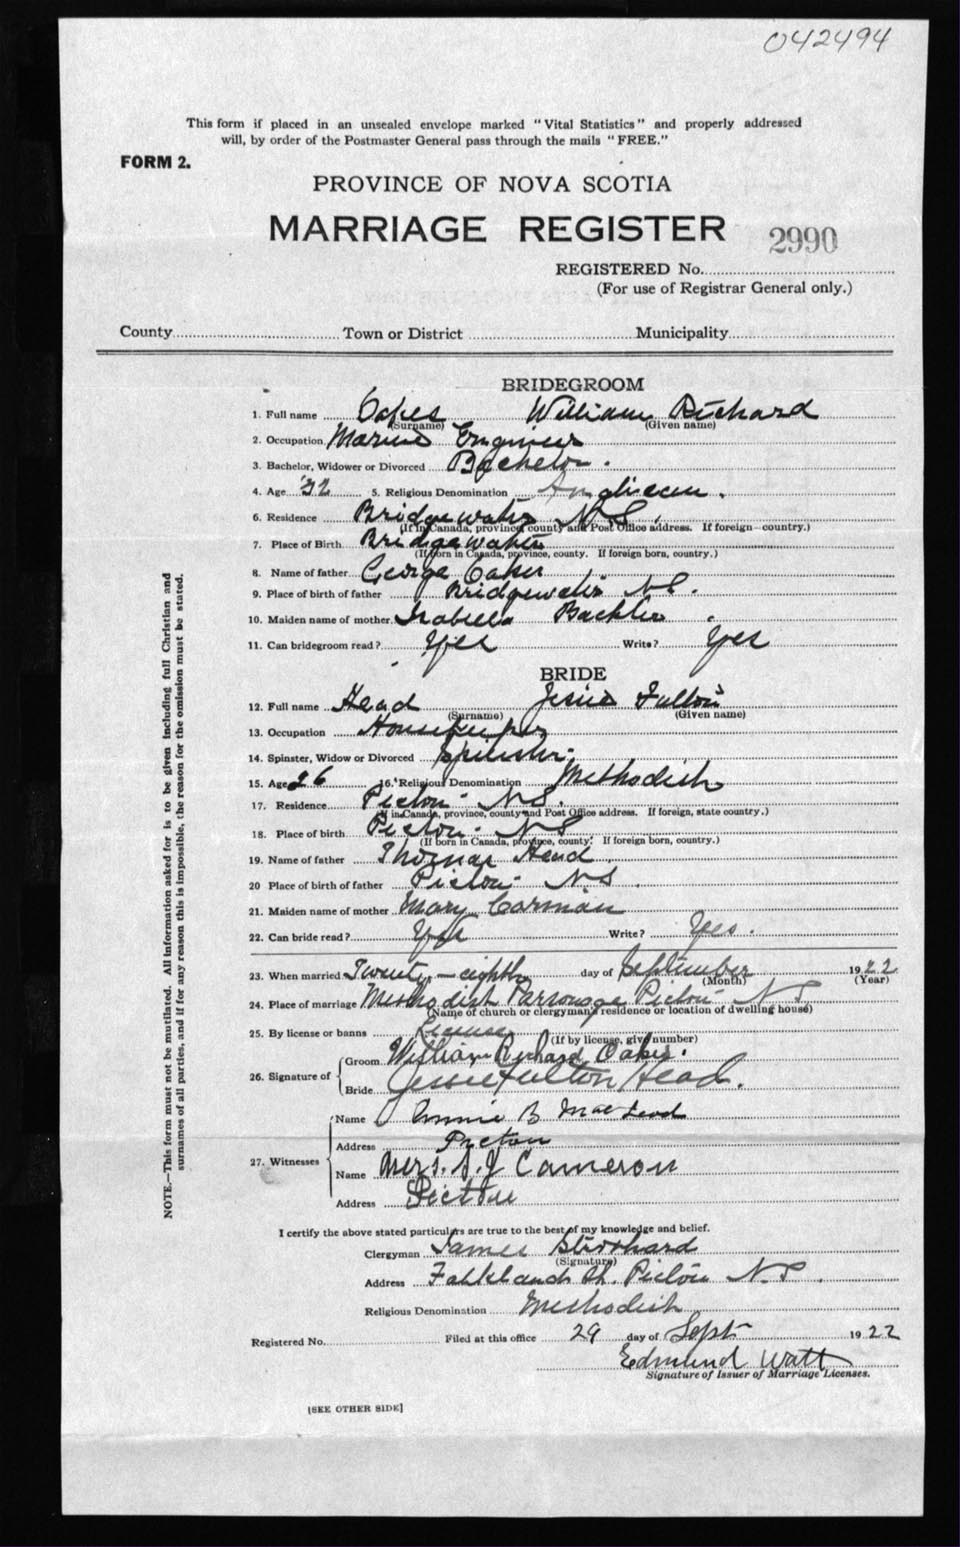 042494
This form if placed in an unsealed envelope marked "Vital Statistics" and properly addressed
will, by order of the Postmaster General pass through the mails "FREE."
FORM 2.
PROVINCE OF NOVA SCOTIA
MARRIAGE REGISTER 2990
REGISTERED No.
(For use of Registrar General only.)
County Town or District Municipality
BRIDEGROOM
1. Full name Oakes William Richard
(Surname) (Given name)
2. Occupation Marine Engineer
3. Bachelor, Widower or Divorced Bachelor.
4. Age 32 5. Religious Denomination Anglican.
6. Residence Bridgewater N.S.
(If in Canada, province, county and Post Office address. If foreign country.)
7. Place of Birth Bridgewater
(If born in Canada, province, county. If foreign born, country.)
8. Name of father George Oakes
9. Place of birth of father Bridgewater N.S.
10. Maiden name of mother Isabella
11. Can bridegroom read? Yes Write? Yes
BRIDE
12. Full name Head Jessie Fulton
(Surname) (Given name)
13. Occupation Housekeeper
14. Spinster, Widow or Divorced Spinster.
15. Age 26 16. Religious Denomination Methodist
17. Residence Pictou N.S.
(If in Canada, province, county and Post Office address. If foreign, state country.)
18. Place of birth Pictou N.S.
(If born in Canada, province, county. If foreign born, country.)
19. Name of father Thomas Head
20 Place of birth of father Pictou N.S.
21. Maiden name of mother Mary Carman
22. Can bride read? Yes Write? Yes.
23. When married Twenty-eighth day of September 1922
(Month) (Year)
24. Place of marriage Methodist Parsonage Pictou N.S.
(Name of church or clergyman's residence or location of dwelling house)
25. By license or banns License
(If by license, give number)
26. Signature of Groom William Richard Oakes.
Bride Jessie Fulton Head.
27. Witnesses Name Annie B MacLeod
Address Pictou
Name Mrs. A. J Cameron
Address Pictou
I certify the above stated particulars are true to the best of my knowledge and belief.
Clergyman James
(Signature)
Address St. Pictou N.S.
Religious Denomination Methodist
Registered No. Filed at this office 29 day of Sept 1922
Edmund Watt
Signature of Issuer of Marriage Licenses.
[SEE OTHER SIDE]
NOTE.—This form must not be mutilated. All information asked for is to be given including full Christian and
surnames of all parties, and if for any reason this is impossible, the reason for the omission must be stated.